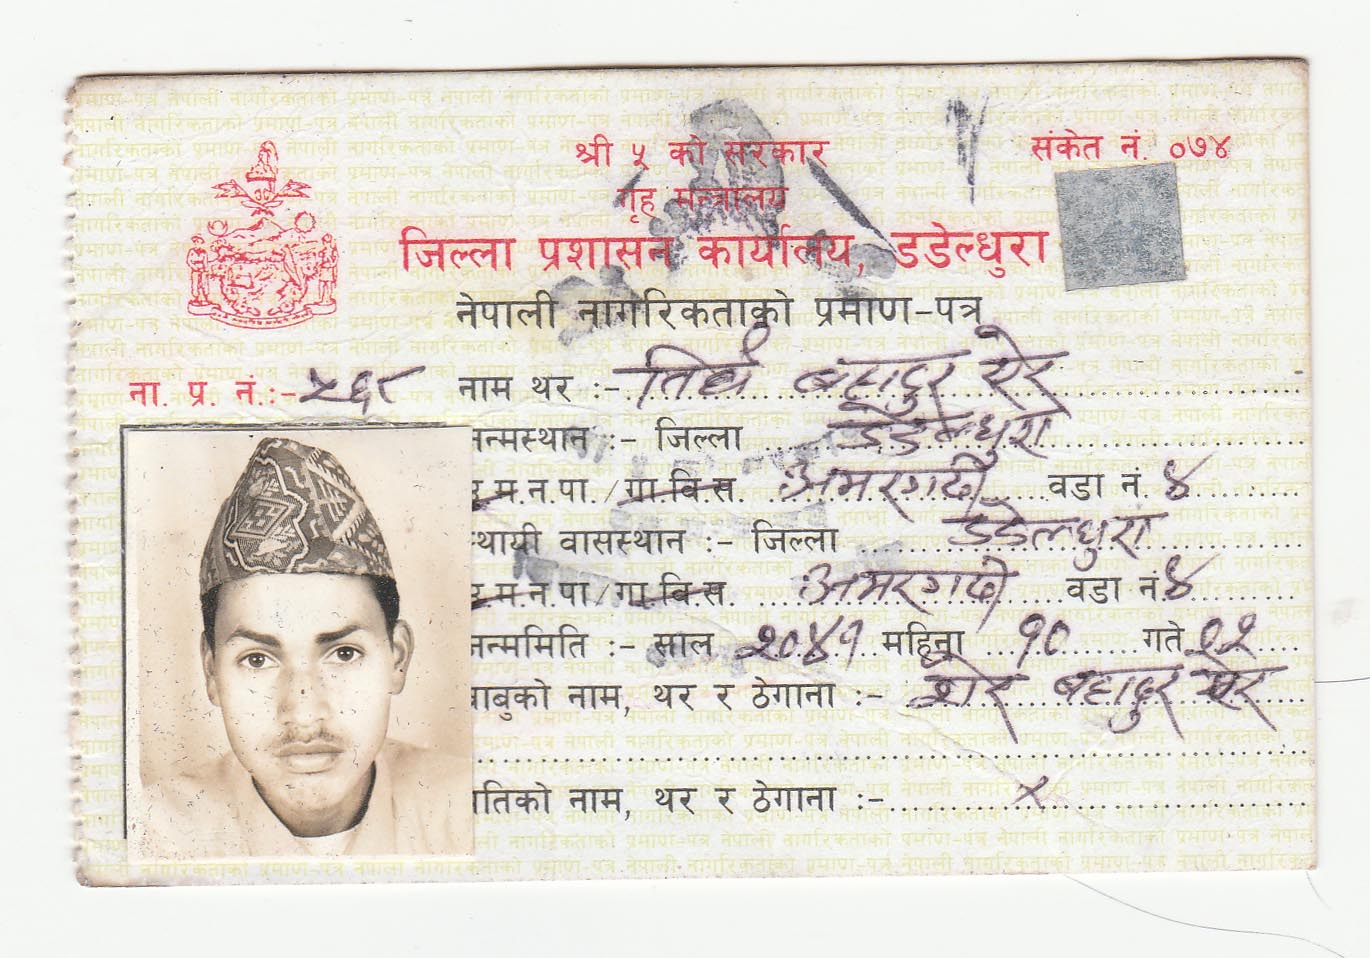 श्री ५ को सरकार
संकेत नं. ०७४
गृह मन्त्रालय
जिल्ला प्रशासन कार्यालय, डडेल्धुरा
नेपाली नागरिकताको प्रमाण-पत्र
ना. प्र. नं.:- ५६८ नाम थर :- बहादुर
जन्मस्थान :- जिल्ला डडेल्धुरा
न.पा./गा.वि.स. अमरगढी वडा नं. ४
स्थायी वासस्थान :- जिल्ला डडेल्धुरा
न.पा/गा.वि.स. अमरगढी वडा नं. ४
जन्ममिति :- साल २०४१ महिना १० गते
बाबुको नाम, थर र ठेगाना :- शेर बहादुर
पतिको नाम, थर र ठेगाना :- ×